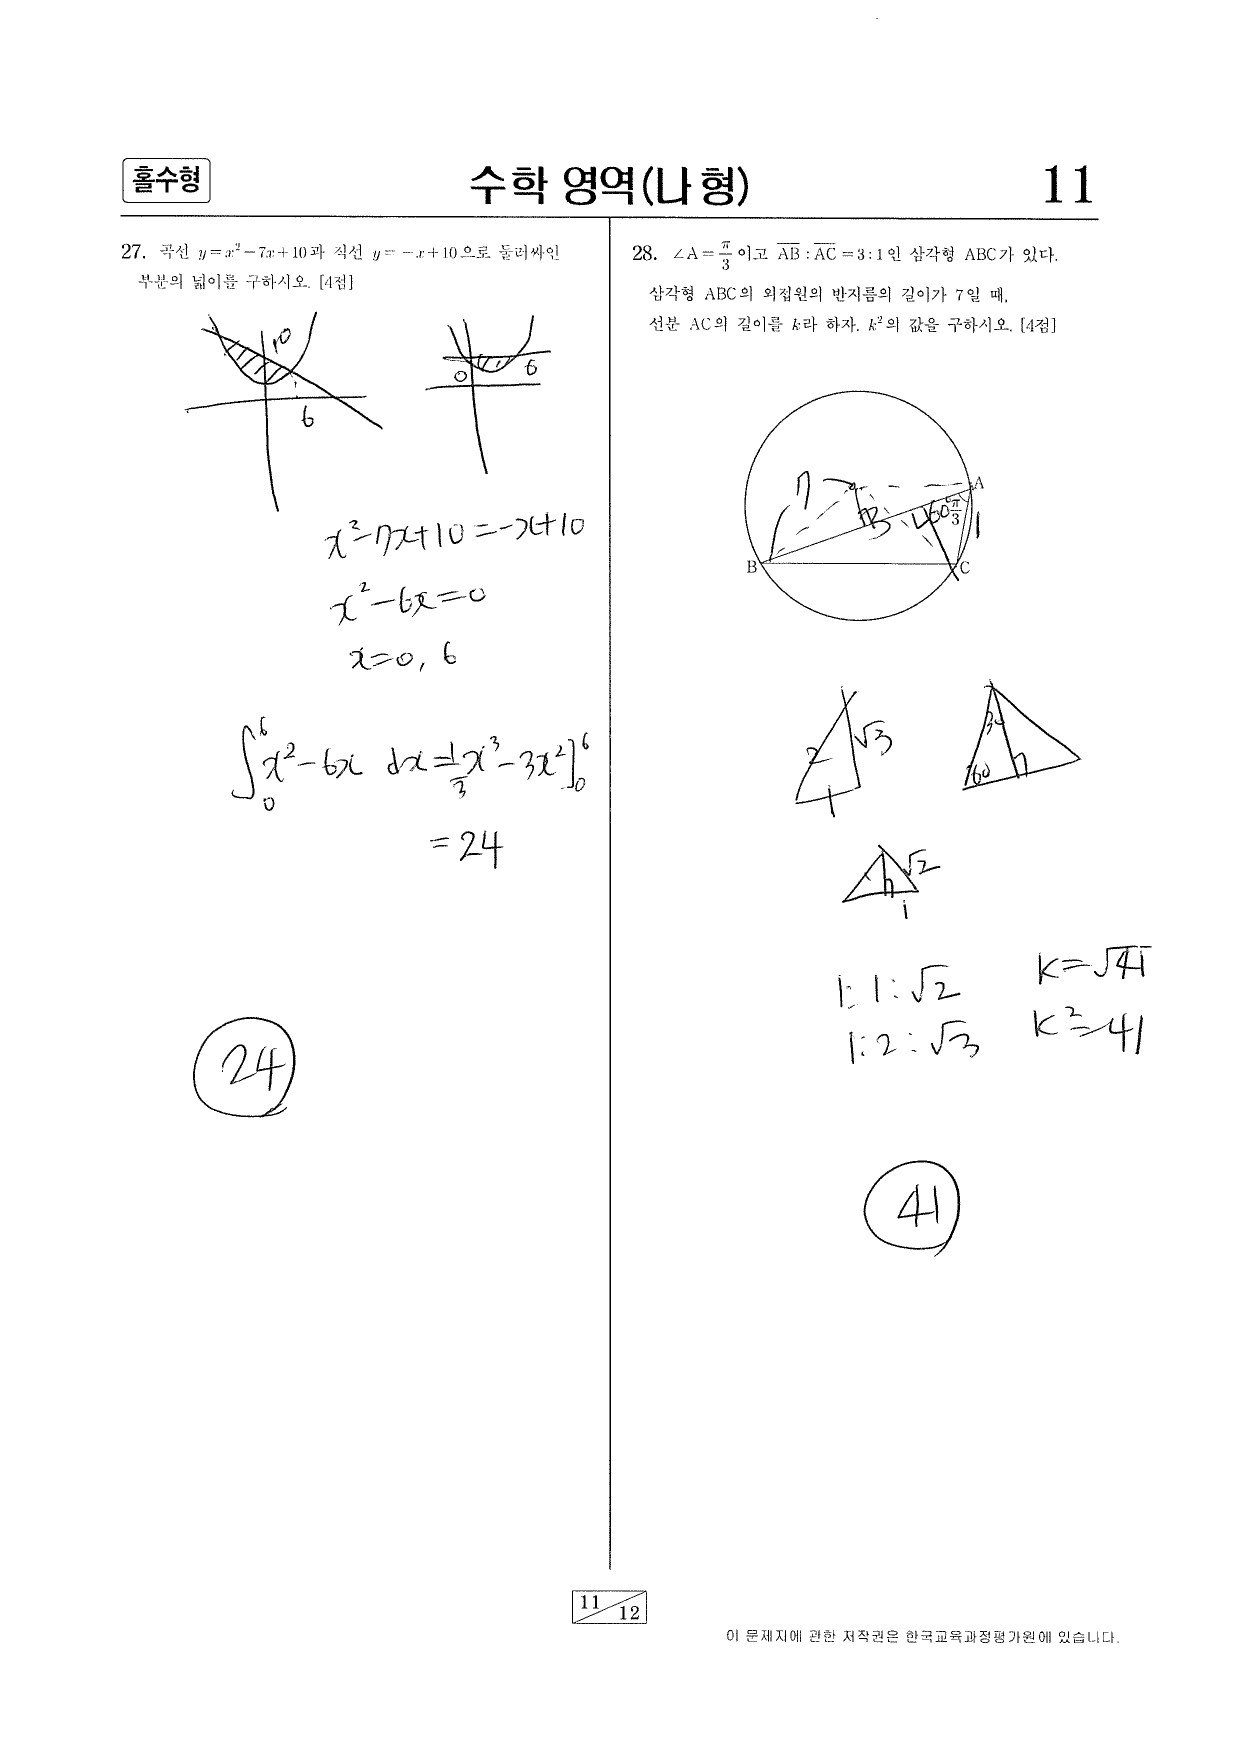 홀수형
수학 영역(나형)
11
27. 곡선 y=x²-7x+10과 직선 y=-x+10으로 둘러싸인
부분의 넓이를 구하시오. [4점]
10
6
0
6
x²-7x+10=-x+10
x²-6x=0
x=0, 6
∫₀⁶ x²-6x dx = 1/3 x³-3x²]₀⁶
=24
24
28. ∠A=π/3이고 AB:AC=3:1인 삼각형 ABC가 있다.
삼각형 ABC의 외접원의 반지름의 길이가 7일 때,
선분 AC의 길이를 k라 하자. k²의 값을 구하시오. [4점]
7
A
π/3
60
3
1
B
C
2
√3
1
30
60
√2
1
1:1:√2
1:2:√3
k=√41
k²=41
41
11/12
이 문제지에 관한 저작권은 한국교육과정평가원에 있습니다.